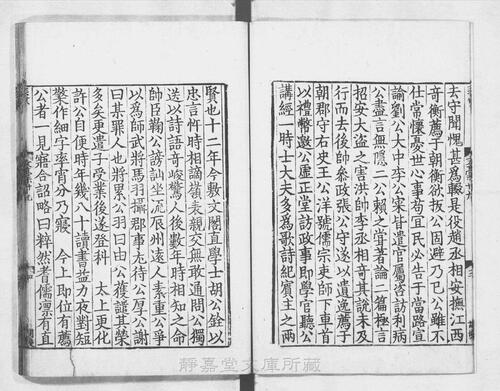 去守聞愧甚爲輟是役趙丞相安撫江西
奇衡薦于朝衡欲扳公固避乃已公雖不
仕常懷憂世心事苟宜民必告于當路宣
諭劉公大中李公寀皆遣官屬咨訪利病
公盡言無隱二公賴之嘗著論二篇極言
招安大盗之害洪帥李丞相奇其説未及
行而去後帥參政張公守遂以遺逸薦于
朝郡守右史王公洋號儒宗吏師下車首
以禮幣邀公正堂訪政事即學官聽公
講經一時士大夫多爲歌詩紀實王之兩
賢也十二年今敷文閣直學士胡公銓以
忠言忤時相謫嶺表親交無敢通問公獨
送以詩語奇峻驚人後數年時相知之命
帥臣鞫公謗訕坐流辰州遠人素重公爭
以爲師武將馬羽攝郡事尤待公厚公謝
曰某罪人也將累公羽曰由公獲譴其榮
多矣更遣子受業後遂登科 太上更化
許公自便時年幾八十讀書益力夜對短
檠作細字率宵分乃寢 今上即位有薦
公者一見寤合詔略曰粹然耆儒凛有直
静嘉堂文庫所蔵